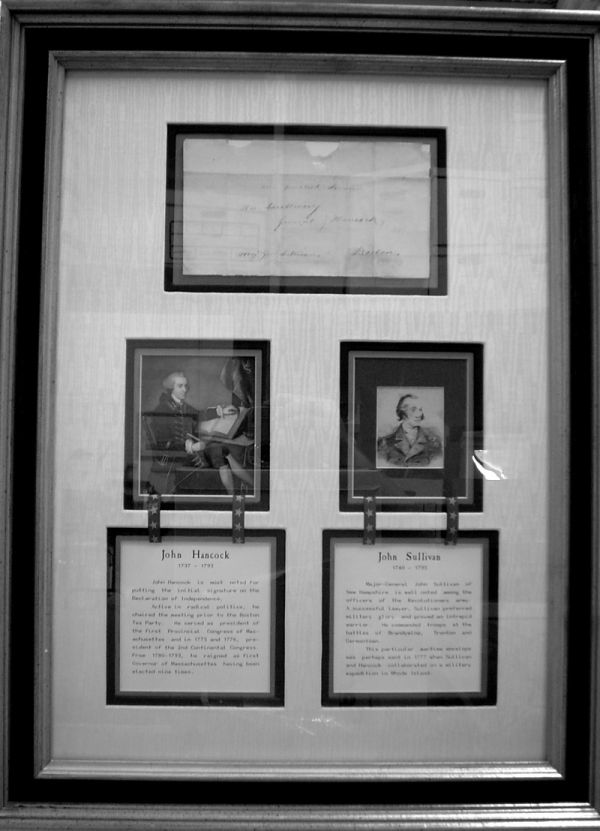 General Hancock,
Boston
John Hancock
1737 - 1793
John Hancock is most noted for
putting the initial signature on the
Declaration of Independence.
Active in radical politics, he
chaired the meeting prior to the Boston
Tea Party. He served as president of
the first Provincial Congress of Mas-
sachusetts and in 1775 and 1776, pre-
sident of the 2nd Continental Congress.
From 1780-1793, he reigned as first
Governor of Massachusetts having been
elected nine times.
John Sullivan
1740 - 1795
Major-General John Sullivan of
New Hampshire is well noted among the
officers of the Revolutionary army.
A successful lawyer, Sullivan preferred
military glory and proved an intrepid
warrior. He commanded troops at the
battles of Brandywine, Trenton and
Germantown.
This particular wartime envelope
was perhaps sent in 1777 when Sullivan
and Hancock collaborated on a military
expedition in Rhode Island.